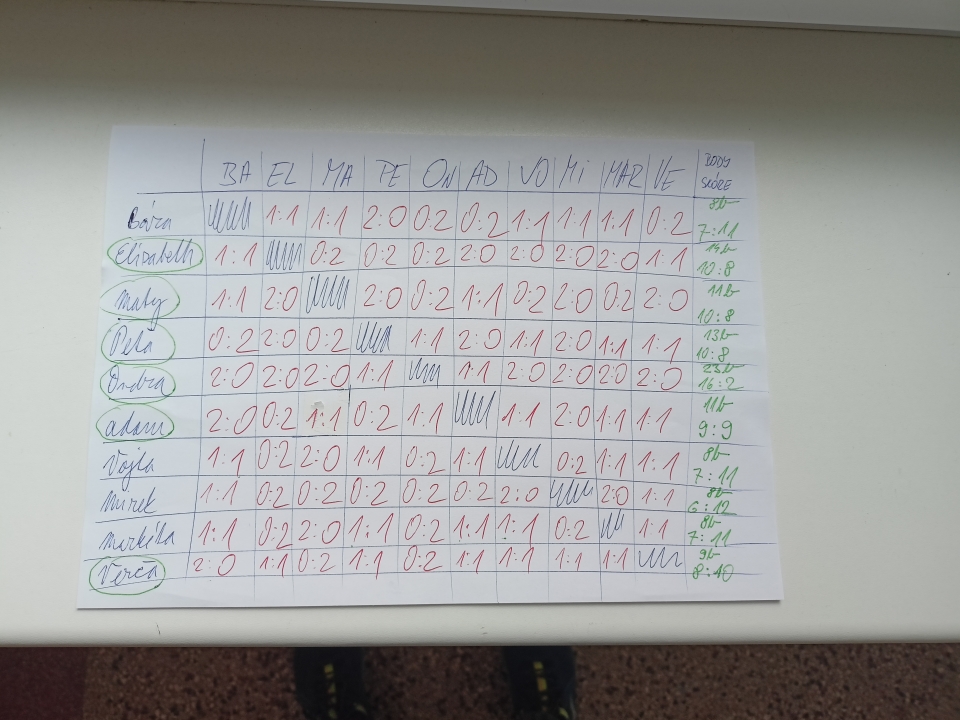 BA EL MA PE ON AD VO Mi MAR VE BODY
SKÓRE
Bára 1:1 1:1 2:0 0:2 0:2 1:1 1:1 1:1 0:2 8b
7:11
Elisabeth 1:1 0:2 0:2 0:2 2:0 2:0 2:0 2:0 1:1 14b
10:8
Maty 1:1 2:0 2:0 0:2 1:1 0:2 2:0 0:2 2:0 11b
10:8
Peťa 0:2 2:0 0:2 1:1 2:0 1:1 2:0 1:1 1:1 13b
10:8
Ondra 2:0 2:0 2:0 1:1 1:1 2:0 2:0 2:0 2:0 23b
16:2
adam 2:0 0:2 1:1 0:2 1:1 1:1 2:0 1:1 1:1 11b
9:9
Vojta 1:1 0:2 2:0 1:1 0:2 1:1 0:2 1:1 1:1 8b
7:11
Mirek 1:1 0:2 0:2 0:2 0:2 0:2 2:0 2:0 1:1 8b
6:12
Markéta 1:1 0:2 2:0 1:1 0:2 1:1 1:1 0:2 1:1 8b
7:11
Verča 2:0 1:1 0:2 1:1 0:2 1:1 1:1 1:1 1:1 9b
8:10